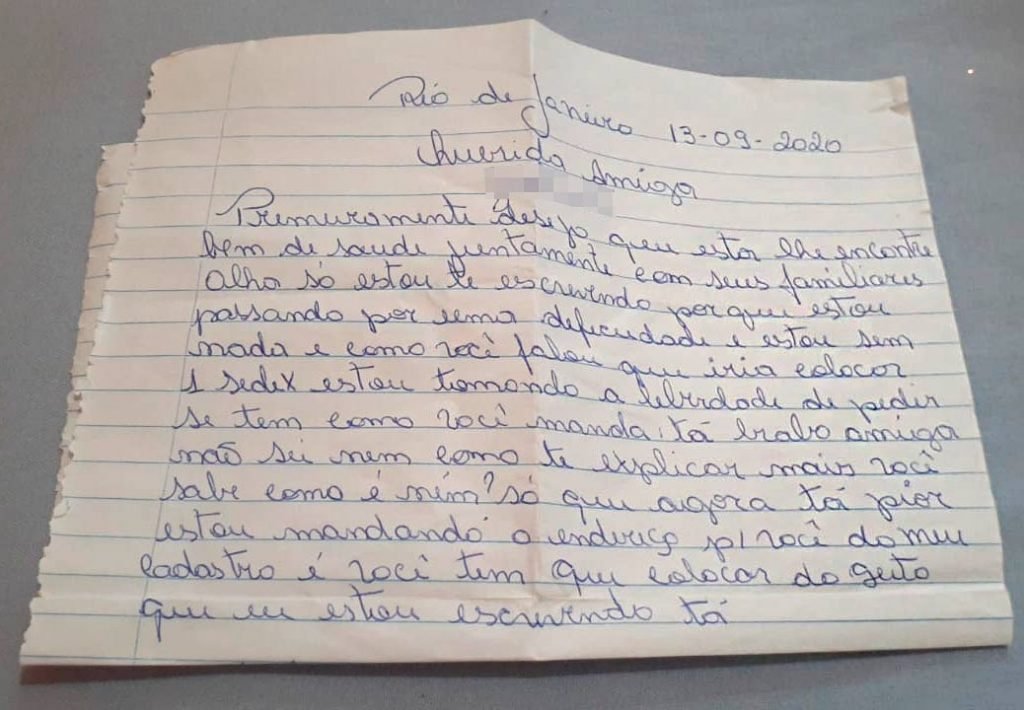 Rio de Janeiro 13-09-2020
Querida Amiga
Primeiramente desejo que esta lhe encontre
bem de saude juntamente com seus familiares
olha só estou te escrevendo porque estou
passando por uma deficudade e estou sem
nada e como você falou que iria colocar
1 sedex estou tomando a liberdade de pedir
se tem como você manda, tá brabo amiga
não sei nem como te explicar mais você
sabe como é ném? só que agora tá pior
estou mandando o endereço p/ você do meu
cadastro é você tem que colocar do geito
que eu estou escrevendo tá